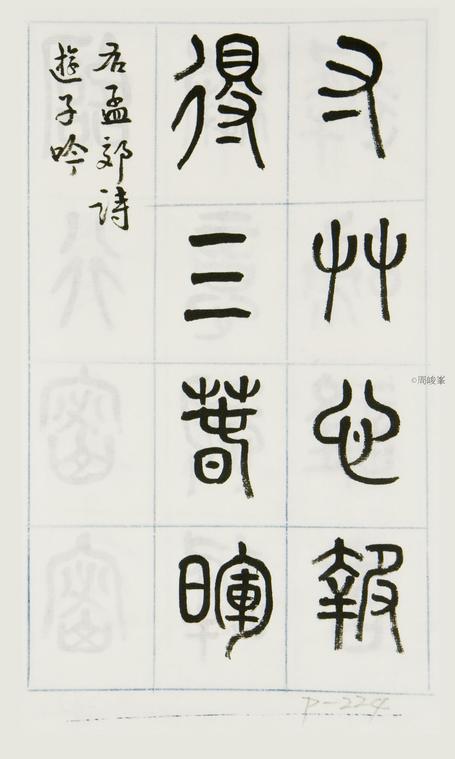 寸艸心報
得三春暉
右孟郊詩
遊子吟
©周峻峯
P-224